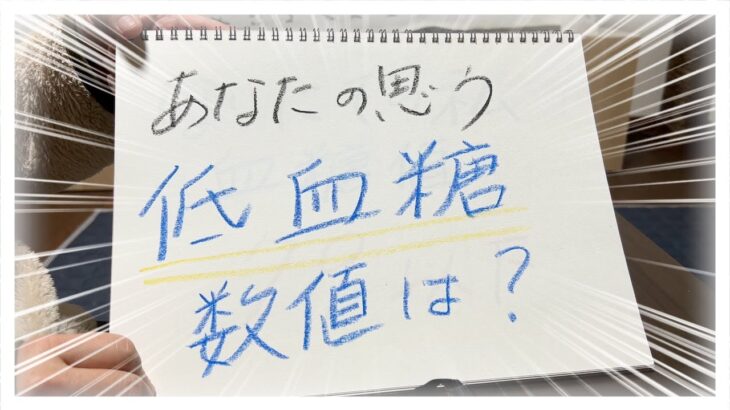 あなたの思う
低血糖
数値は？